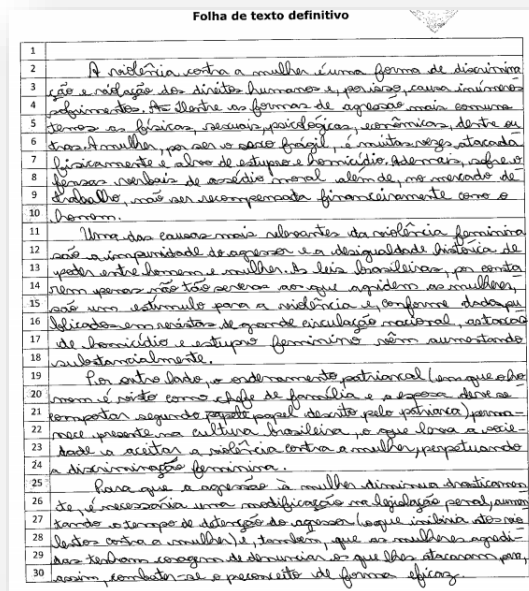 Folha de texto definitivo
1
2 A violência contra a mulher é uma forma de discrimina
3 ção e violação dos direitos humanos e, por isso, causa inúmeros
4 sofrimentos. As Dentre as formas de agressão mais comuns
5 temos as físicas, sexuais, psicológicas, econômicas, dentre ou
6 tras. A mulher, por ser o sexo frágil, é muitas vezes, atacada
7 fisicamente e alvo de estupro e homicídio. Ademais, sofre o
8 fensas verbais de assédio moral além de, no mercado de
9 trabalho, não ser recompensada financeiramente como o
10 homem.
11 Uma das causas mais relevantes da violência feminina
12 são a impunidade do agressor e a desigualdade histórica de
13 poder entre homem e mulher. As leis brasileiras, por conta
14 rem penas não tão severas aos que agridem as mulheres,
15 são um estímulo para a violência e, conforme dados pu
16 blicados em revistas de grande circulação nacional, as taxas
17 de homicídio e estupro feminino vêm aumentando
18 substancialmente.
19 Por outro lado, o ordenamento patriarcal (em que o ho
20 mem é visto como chefe de família e a esposa deve se
21 comportar segundo papel descrito pelo patriarca) perma-
22 nece presente na cultura brasileira, o que leva a socie-
23 dade a aceitar a violência contra a mulher, perpetuando
24 a discriminação feminina.
25 Para que a agressão à mulher diminua drasticamen
26 te, é necessária uma modificação na legislação penal, aumen
27 tando o tempo de detenção do agressor (o que inibiria atos vio
28 lentos contra a mulher) e, também, que as mulheres agredi-
29 das tenham coragem de denunciar os que lhes atacaram para,
30 assim, combater-se o preconceito de forma eficaz.